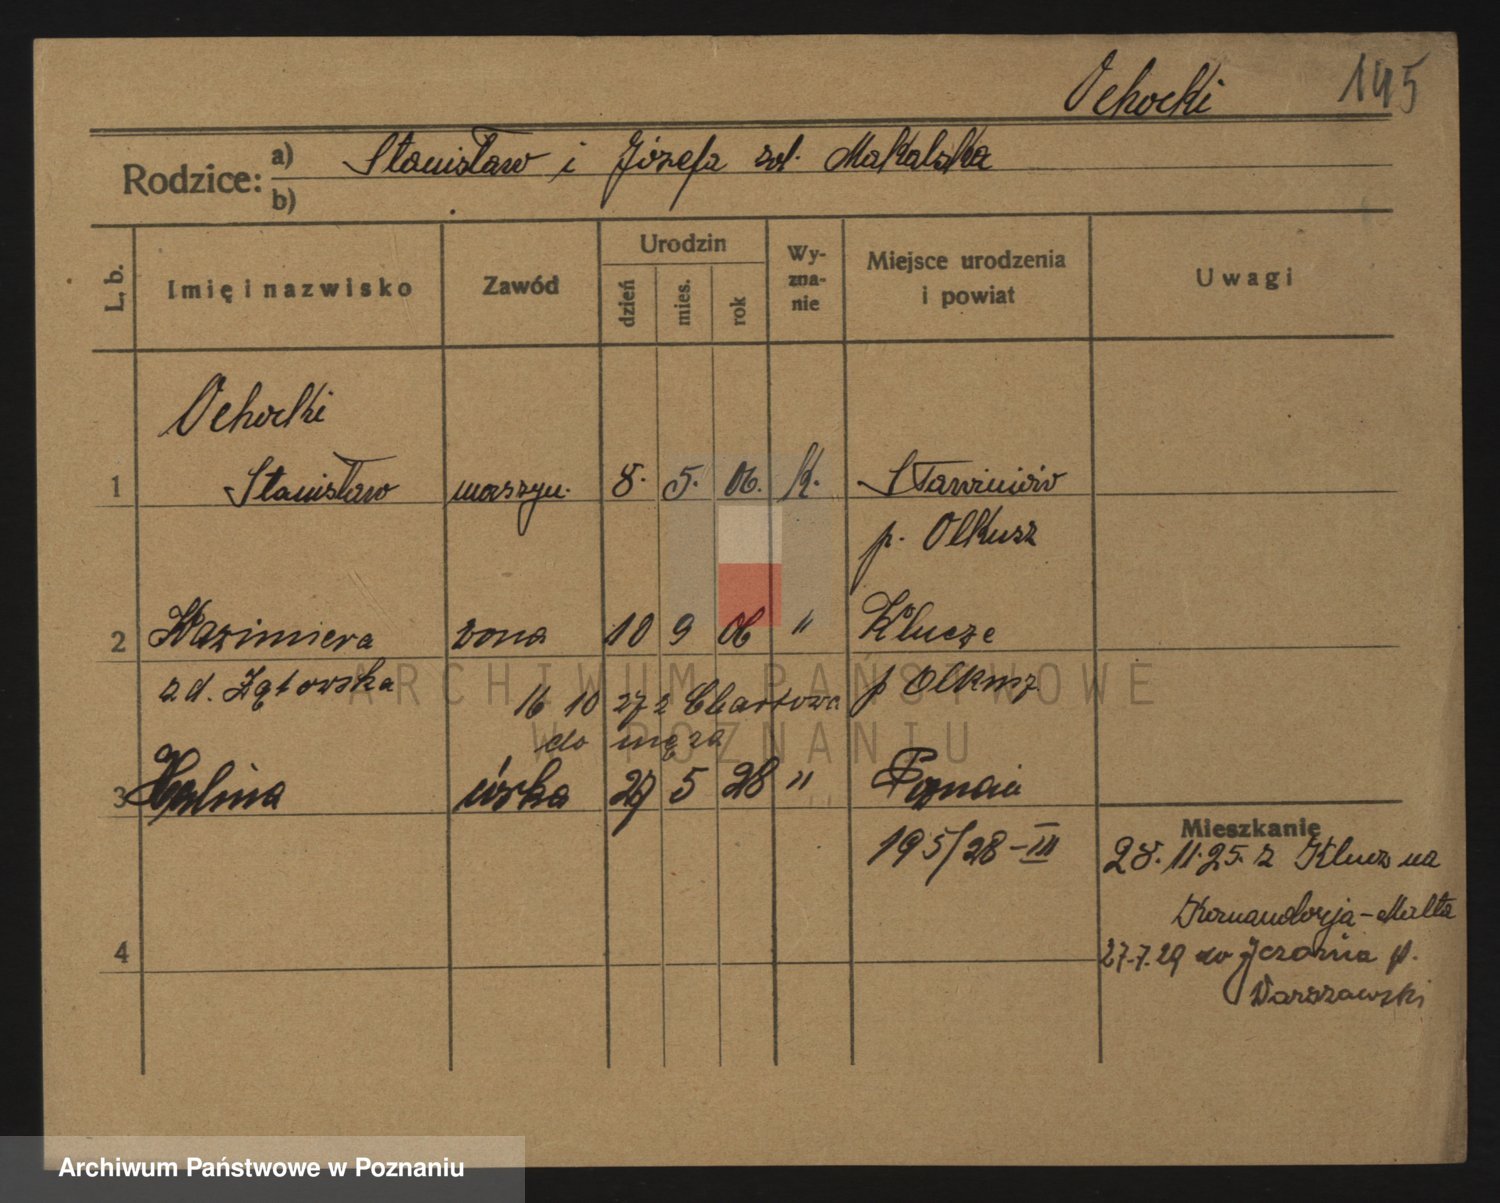 Ochocki 145
Rodzice: a) Stanisław i Józefa zd. Makalska
b)
L. b. Imię i nazwisko Zawód Urodzin dzień mies. rok Wyznanie Miejsce urodzenia i powiat Uwagi
Ochocki
1 Stanisław maszyn. 8. 5. 06. K. Sławniów
p. Olkusz
2 Kazimiera żona 10 9 06 " Klucze
zd. Zętowska p Olkusz
16 10 27 z Chartowa
do męża
3 Halina córka 29 5 28 " Poznań
195/28-III
Mieszkanie
28. 11. 25. z Klucz na
Komandorja-Malta
27.7.29 do p.
Warszawski
4
ARCHIWUM PAŃSTWOWE
W POZNANIU
Archiwum Państwowe w Poznaniu